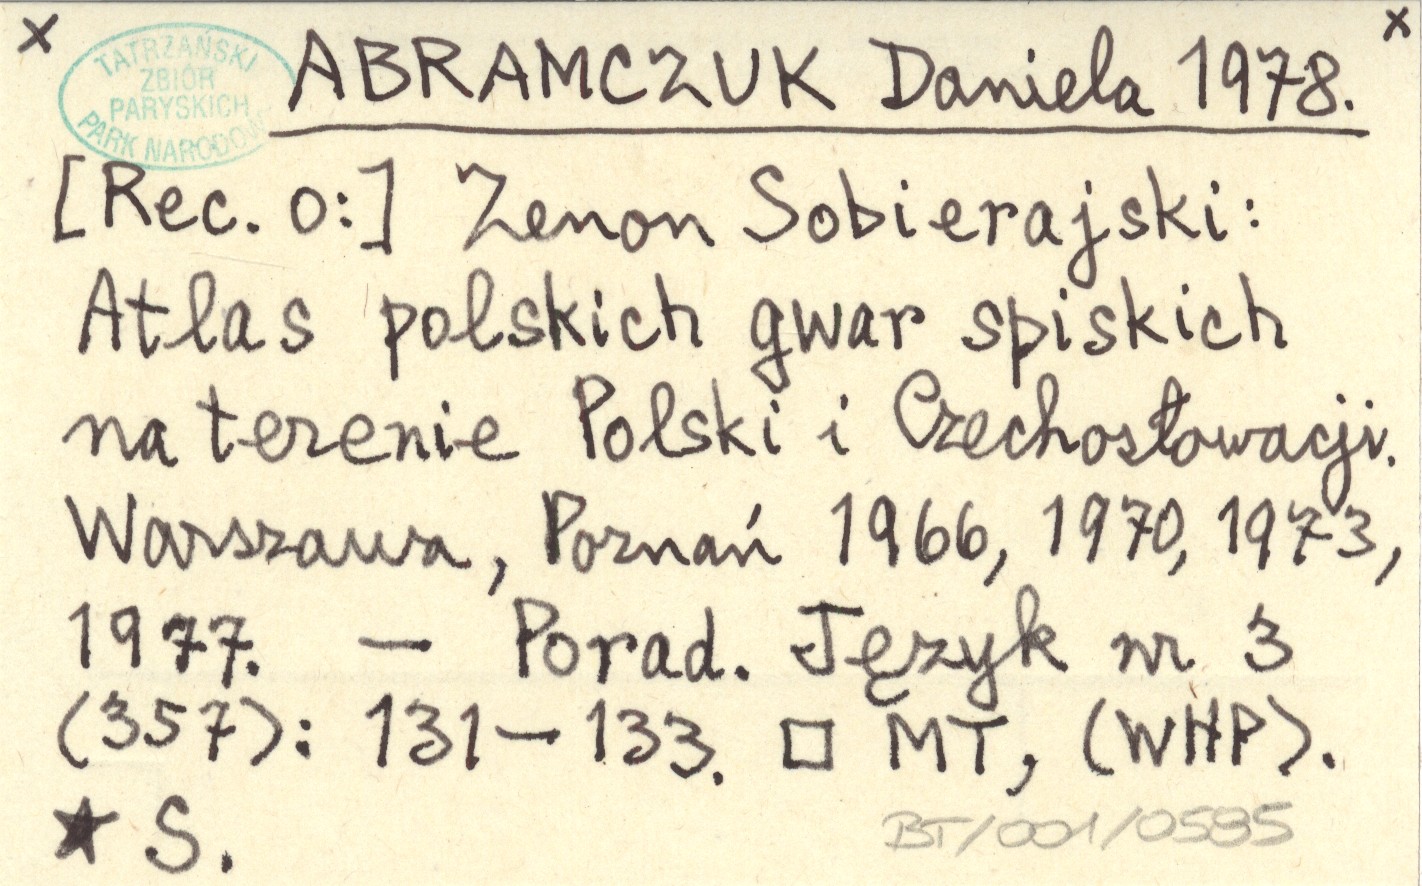 x x
TATRZAŃSKI
ZBIÓR
PARYSKICH
PARK NARODOWY
ABRAMCZUK Daniela 1978.
[Rec. o:] Zenon Sobierajski:
Atlas polskich gwar spiskich
na terenie Polski i Czechosłowacji.
Warszawa, Poznań 1966, 1970, 1973,
1977. — Porad. Język nr 3
(357): 131—133. □ MT, (WHP).
★ S.
BT/001/0595